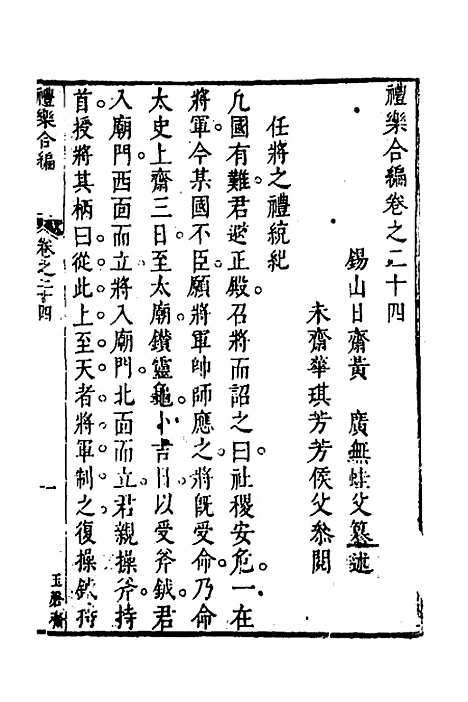 禮樂合編卷之二十四
錫山日齋黃　廣無蛙父纂述
未齋華琪芳芳侯父叅閱
任將之禮統紀
凢國有難君避正殿召將而詔之曰社稷安危一在
將軍今某國不臣願將軍帥師應之將既受命乃命
太史上齋三日至太廟鑚靈龜卜吉日以受斧鉞君
入廟門西面而立將入廟門北面而立君親操斧持
首授將其柄曰從此上至天者將軍制之復操鉞持
禮樂合編
卷之二十四
一
玉磬齋